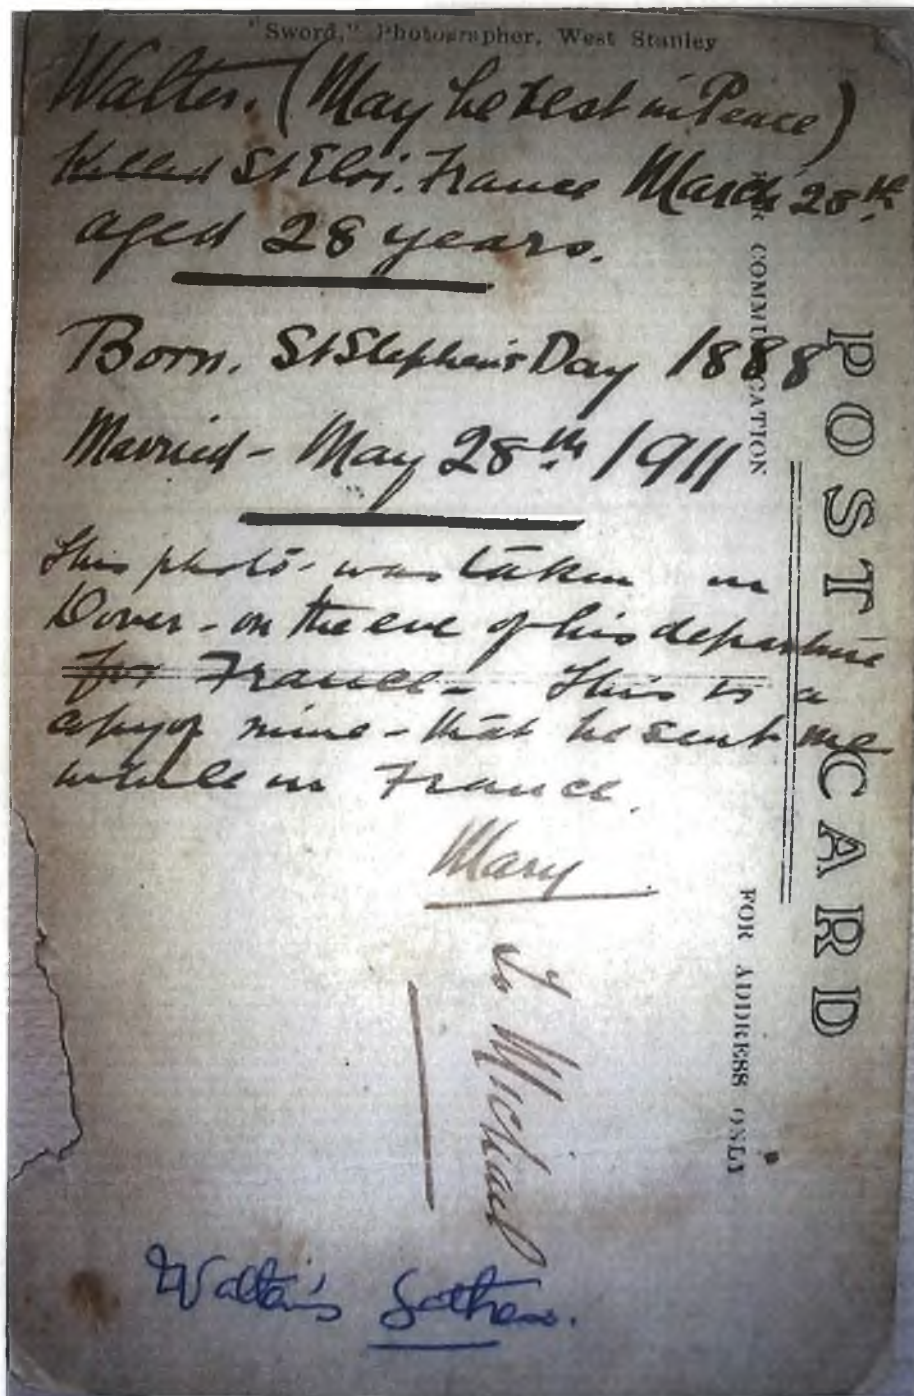 "Sword," Photographer, West Stanley
Walter. (May he Rest in Peace)
Killed St Eloi. France March 28th
aged 28 years.
Born. St Stephen's Day 1888
Married - May 28th 1911
This photo - was taken in
Dover - on the eve of his departure
for France - This is a
copy of mine - that he sent me
while in France.
Mary
To Michael
Walter's father.
POST CARD
FOR COMMUNICATION
FOR ADDRESS ONLY